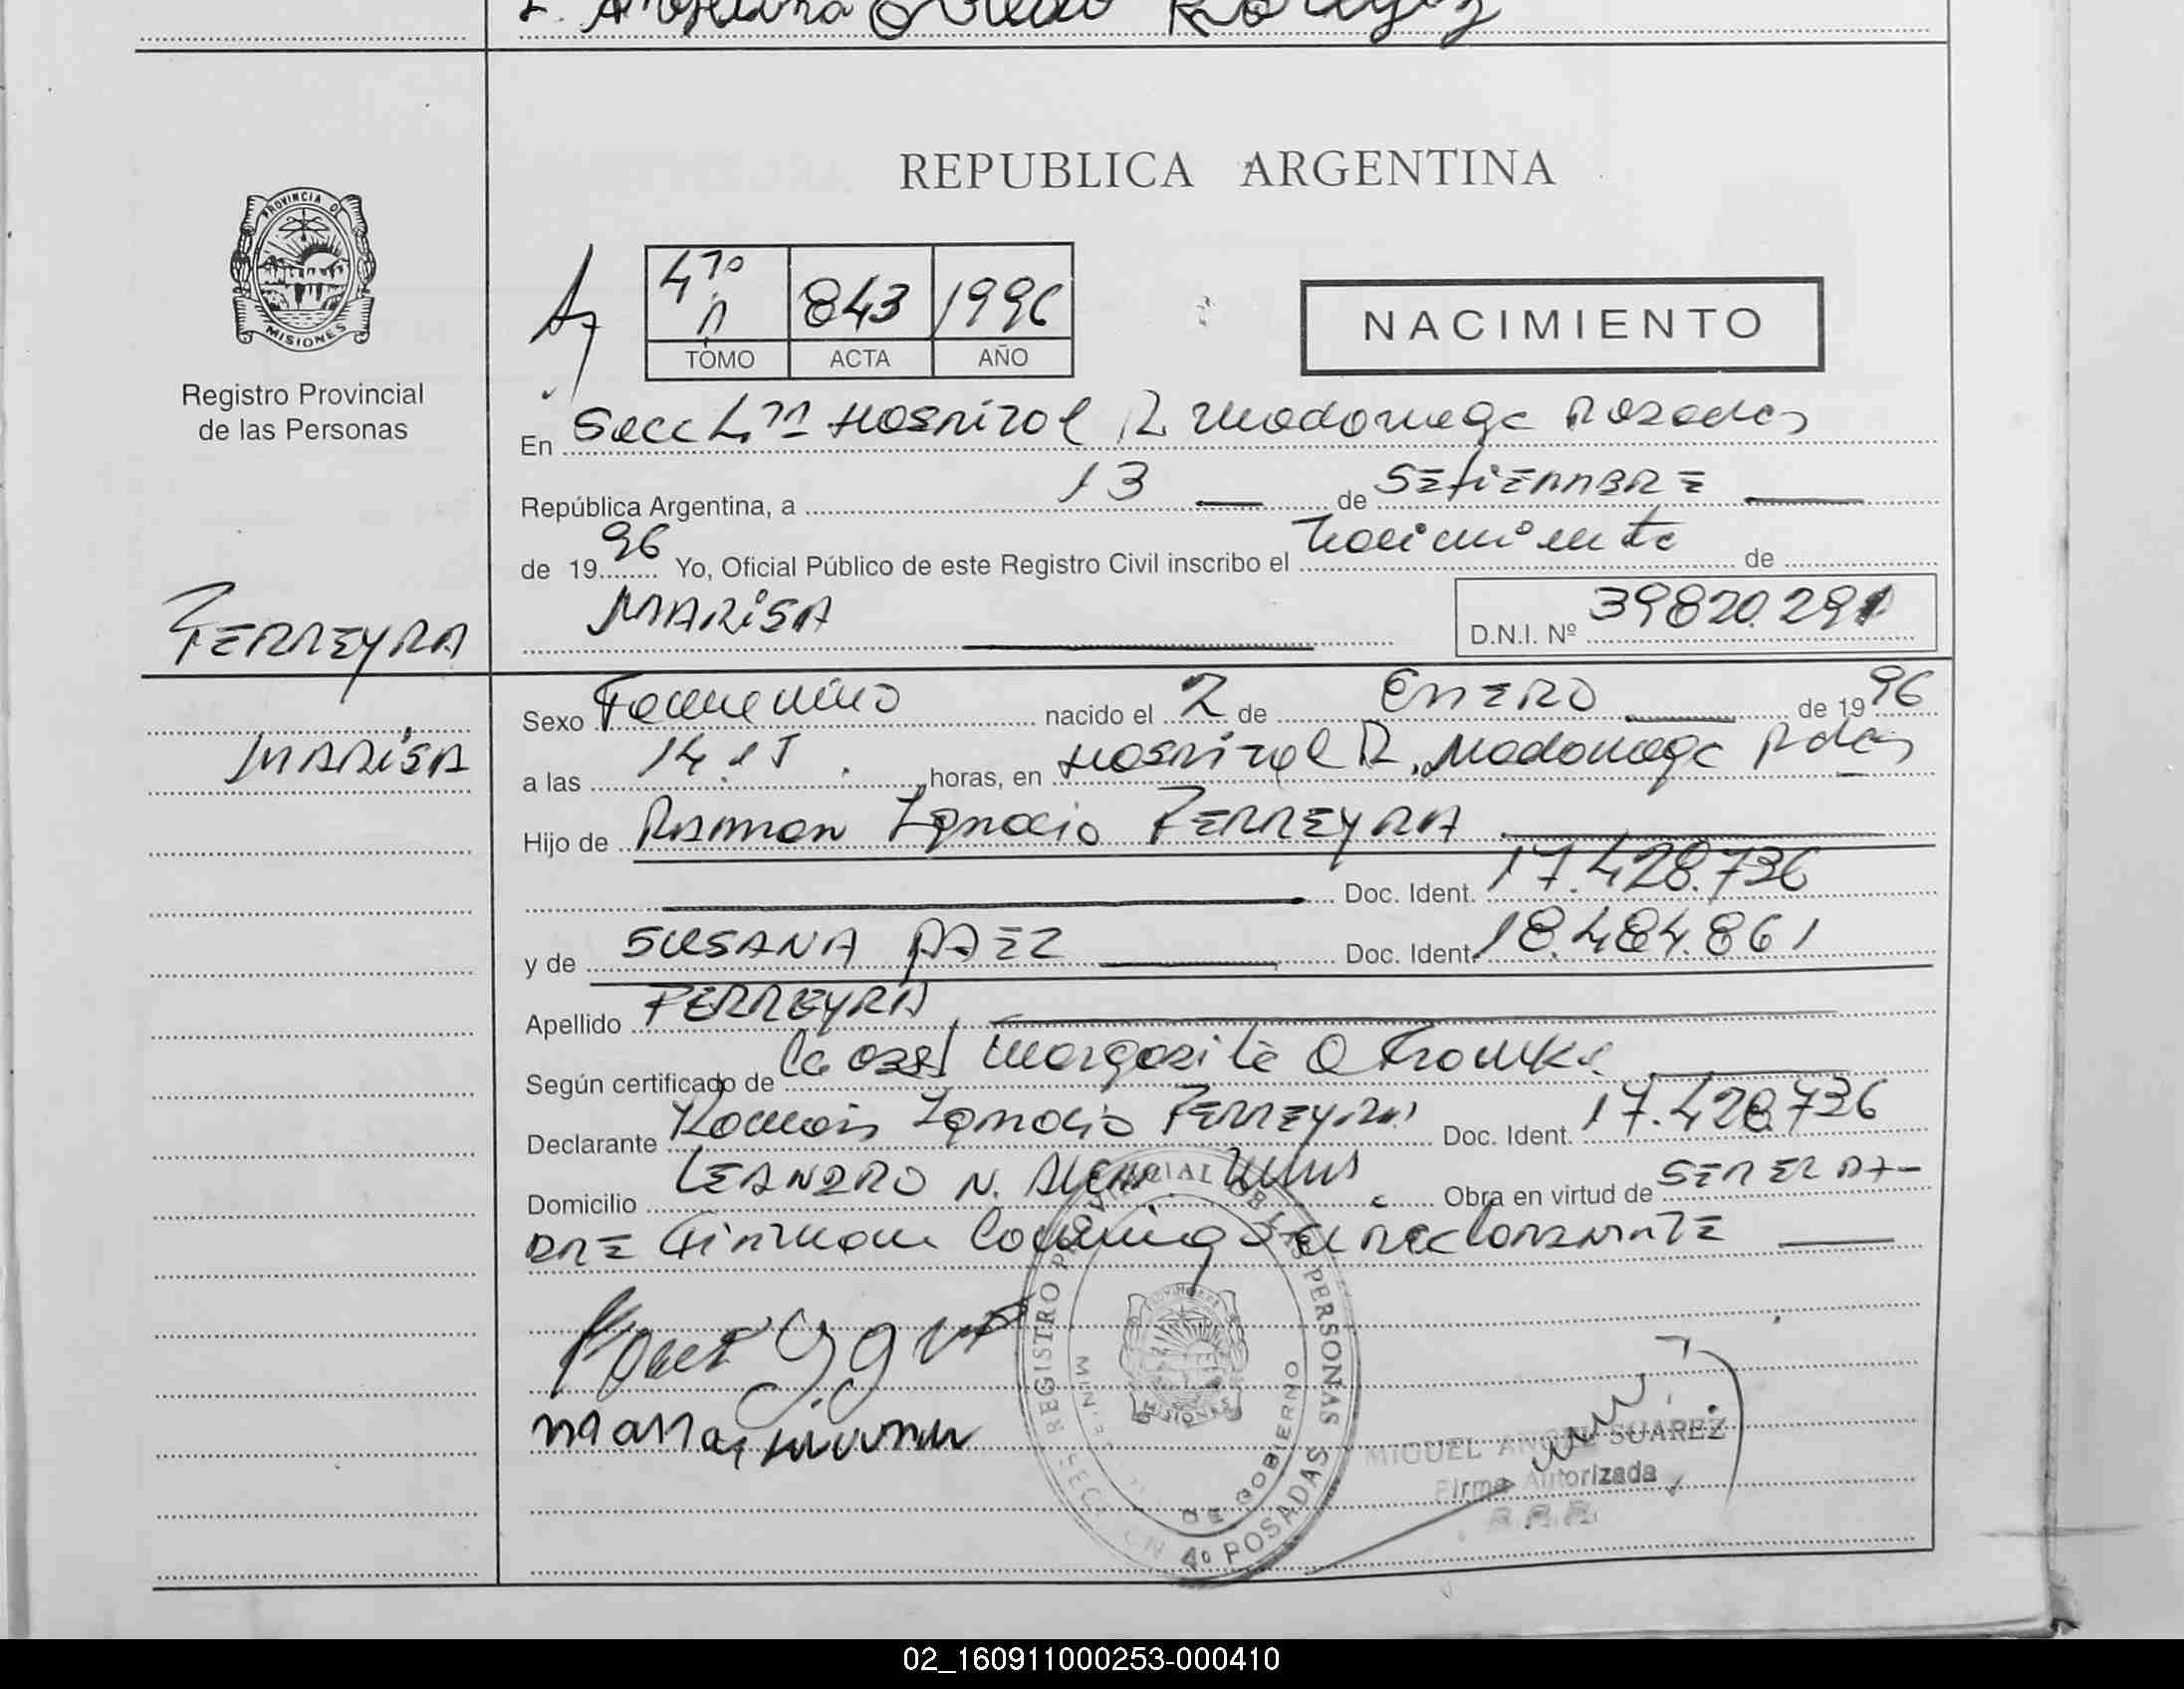 REPUBLICA ARGENTINA
PROVINCIA DE
MISIONES
Registro Provincial
de las Personas
4to 843 1996
TOMO ACTA AÑO
NACIMIENTO
En Secc 4ta Hospital R Madariaga Posadas
República Argentina, a 13 de SETIEMBRE
de 1996 Yo, Oficial Público de este Registro Civil inscribo el Nacimiento de
MARISA D.N.I. Nº 39820.291
FERREYRA
MARISA
Sexo Femenino nacido el 2 de ENERO de 1996
a las 14.15 horas, en Hospital R. Madariaga Pdas
Hijo de Ramon Ignacio FERREYRA
Doc. Ident. 17.428.736
y de SUSANA PAEZ Doc. Ident. 18.484.861
Apellido FERREYRA
Según certificado de la obst Margarita
Declarante Ramón Ignacio FERREYRA Doc. Ident. 17.428.736
Domicilio LEANDRO N. Alem Obra en virtud de SER EL PA-
DRE Firman conmigo el declarante
REGISTRO PROVINCIAL DE LAS PERSONAS
SECCION 4º POSADAS
MIN. DE GOBIERNO
MISIONES
MIGUEL ANGEL SUAREZ
Firma Autorizada
02_160911000253-000410